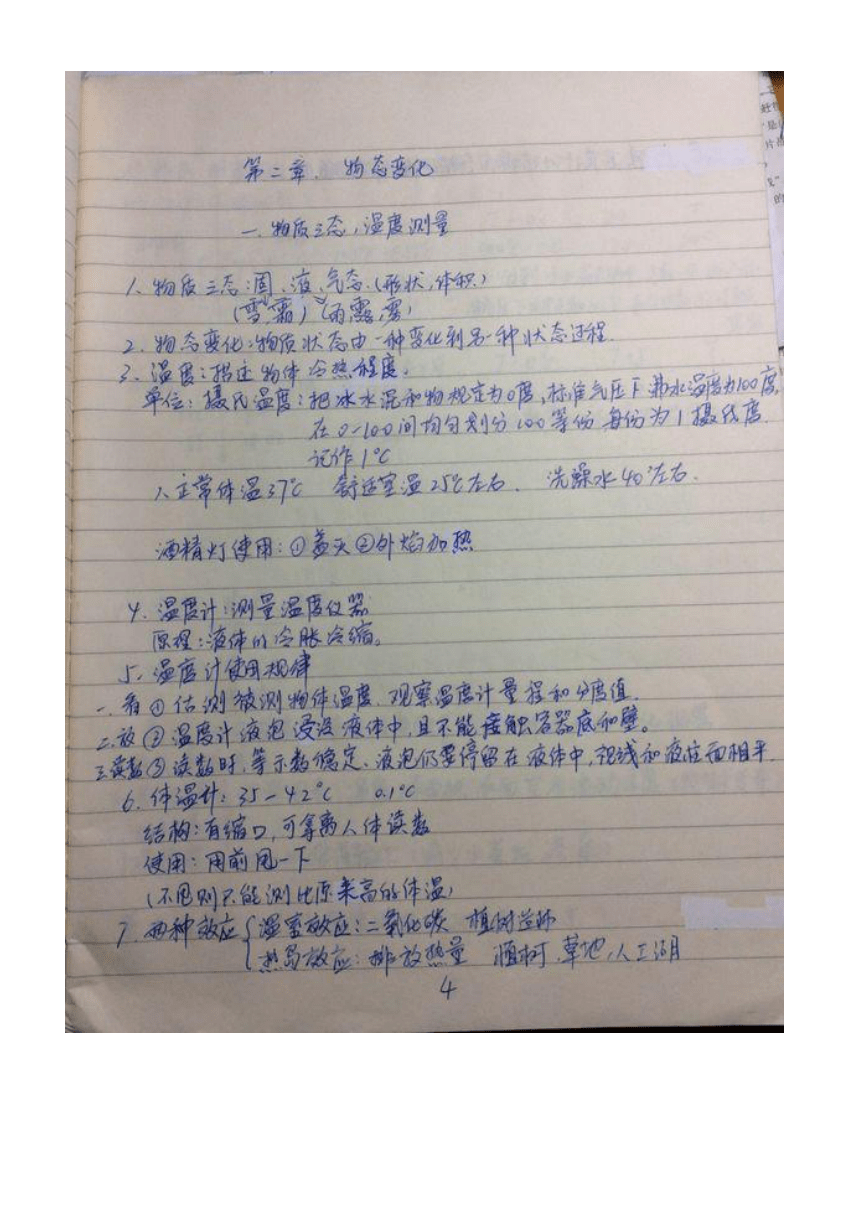 第二章、物态变化
一.物质三态，温度测量
1、物质三态：固、液、气态.(形状,体积)
(雪,霜) (雨,露,雾)
2.物态变化：物质状态由一种变化到另一种状态过程.
3.温度：描述物体冷热程度。
单位：摄氏温度：把冰水混和物规定为0度,标准气压下沸水温度为100度,
在0-100间均匀划分100等份每份为1摄氏度.
记作1℃
人正常体温37℃ 舒适室温25℃左右. 洗澡水40°左右.
酒精灯使用：①盖灭②外焰加热
4.温度计：测量温度仪器
原理：液体的冷胀冷缩。
5.温度计使用规律
一.看①估测被测物体温度.观察温度计量程和分度值.
二.放②温度计液泡浸没液体中,且不能接触容器底和壁。
三.读数③读数时,等示数稳定、液泡仍要停留在液体中,视线和液柱面相平.
6.体温计：35-42℃ 0.1℃
结构：有缩口,可拿离人体读数
使用：用前甩一下
(不甩则只能测比原来高的体温)
7.两种效应{温室效应：二氧化碳 植树造林
热岛效应：排放热量 植树、草地,人工湖
4
赶
是
片
的